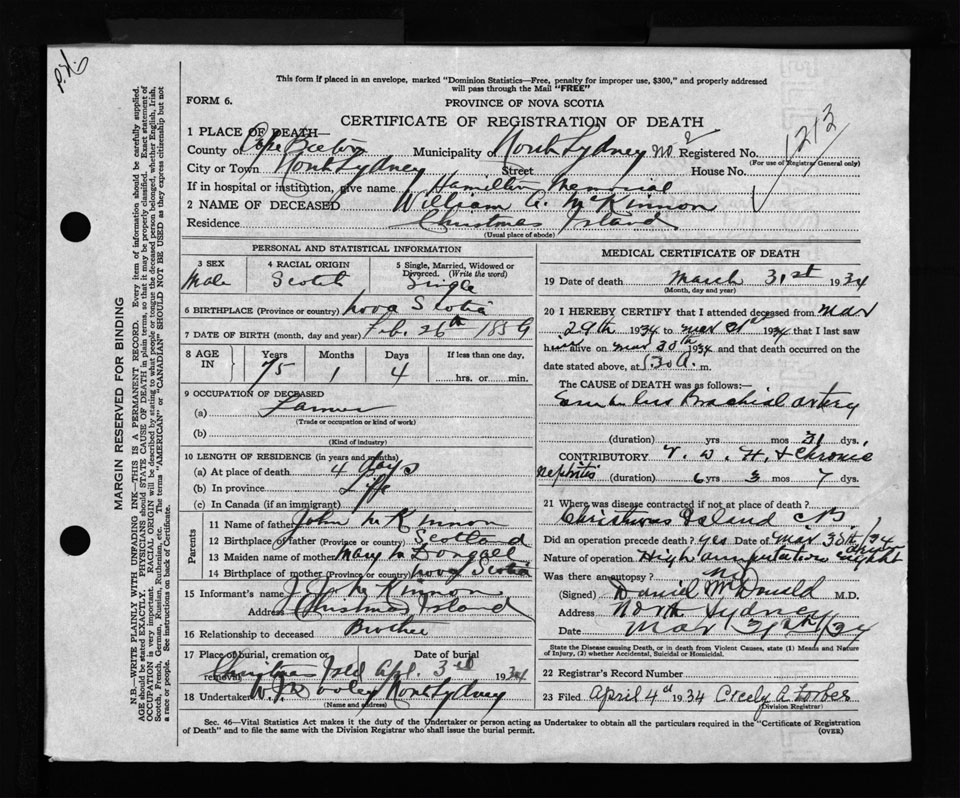 This form if placed in an envelope, marked "Dominion Statistics—Free, penalty for improper use, $300," and properly addressed
will pass through the Mail "FREE"
FORM 6.
PROVINCE OF NOVA SCOTIA
CERTIFICATE OF REGISTRATION OF DEATH
1213
1 PLACE OF DEATH—
County of Cape Breton Municipality of North Sydney No. 2 Registered No.
(For use of Registrar General only)
City or Town North Sydney Street House No.
If in hospital or institution, give name Hamilton Memorial
2 NAME OF DECEASED William A. McKinnon
Residence Christmas Island
(Usual place of abode)
PERSONAL AND STATISTICAL INFORMATION
3 SEX 4 RACIAL ORIGIN 5 Single, Married, Widowed or Divorced. (Write the word)
Male Scotch Single
6 BIRTHPLACE (Province or country) Nova Scotia
7 DATE OF BIRTH (month, day and year) Feb. 26th 1859
8 AGE IN Years Months Days If less than one day,
75 1 4 hrs. or min.
9 OCCUPATION OF DECEASED
(a) Farmer
(Trade or occupation or kind of work)
(b)
(Kind of industry)
10 LENGTH OF RESIDENCE (in years and months)
(a) At place of death 4 days
(b) In province Life
(c) In Canada (if an immigrant)
Parents
11 Name of father John McKinnon
12 Birthplace of father (Province or country) Scotland
13 Maiden name of mother Mary McDougall
14 Birthplace of mother (Province or country) Nova Scotia
15 Informant's name McKinnon
Address Christmas Island
16 Relationship to deceased Brother
17 Place of burial, cremation or removal Date of burial
Christmas Isld Apl. 3rd 1934
18 Undertaker W. J. Dooley North Sydney
(Name and address)
MEDICAL CERTIFICATE OF DEATH
19 Date of death March 31st 1934
(Month, day and year)
20 I HEREBY CERTIFY that I attended deceased from Mar
29th 1934 to Mar 31st 1934 that I last saw
him alive on Mar 30th 1934 and that death occurred on the
date stated above, at 1.30 A. m.
The CAUSE OF DEATH was as follows:—
Embolus Brachial artery
(duration) yrs mos 21 dys.
CONTRIBUTORY V. D. H. & Chronic
nephritis (duration) 6 yrs 3 mos 7 dys.
21 Where was disease contracted if not at place of death?
Christmas Island C.B.
Did an operation precede death? yes Date of Mar 30th/34
Nature of operation High amputation right
Was there an autopsy? no
(Signed) Daniel McDonald M.D.
Address North Sydney
Date Mar 31st/34
State the Disease causing Death, or in death from Violent Causes, state (1) Means and Nature
of Injury, (2) whether Accidental, Suicidal or Homicidal.
22 Registrar's Record Number
23 Filed April 4th 1934 Creely A. Forbes
(Division Registrar)
Sec. 46—Vital Statistics Act makes it the duty of the Undertaker or person acting as Undertaker to obtain all the particulars required in the "Certificate of Registration
of Death" and to file the same with the Division Registrar who shall issue the burial permit. (OVER)
MARGIN RESERVED FOR BINDING
N.B.—WRITE PLAINLY WITH UNFADING INK—THIS IS A PERMANENT RECORD. Every item of information should be carefully supplied.
AGE should be stated EXACTLY. PHYSICIANS should STATE CAUSE OF DEATH in plain terms, so that it may be properly classified. Exact statement of
OCCUPATION is very important. RACIAL ORIGIN will be described by stating to what people or tongue the deceased person belonged, whether English, Irish,
Scotch, French, German, Russian, Ruthenian, etc. The terms "AMERICAN" or "CANADIAN" SHOULD NOT BE USED as they express citizenship but not
a race or people. See instructions on back of Certificate.